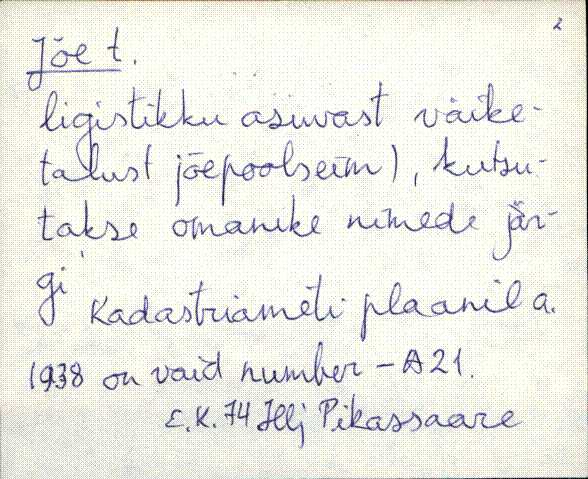 2
Jõe t.
ligistikku asuvast väike-
talust jõepoolseim), kutsu-
takse omanike nimede jär-
gi
Kadastriameti plaanil a.
1938 on vaid number - A 21.
E.K. 74 Illj Pikassaare